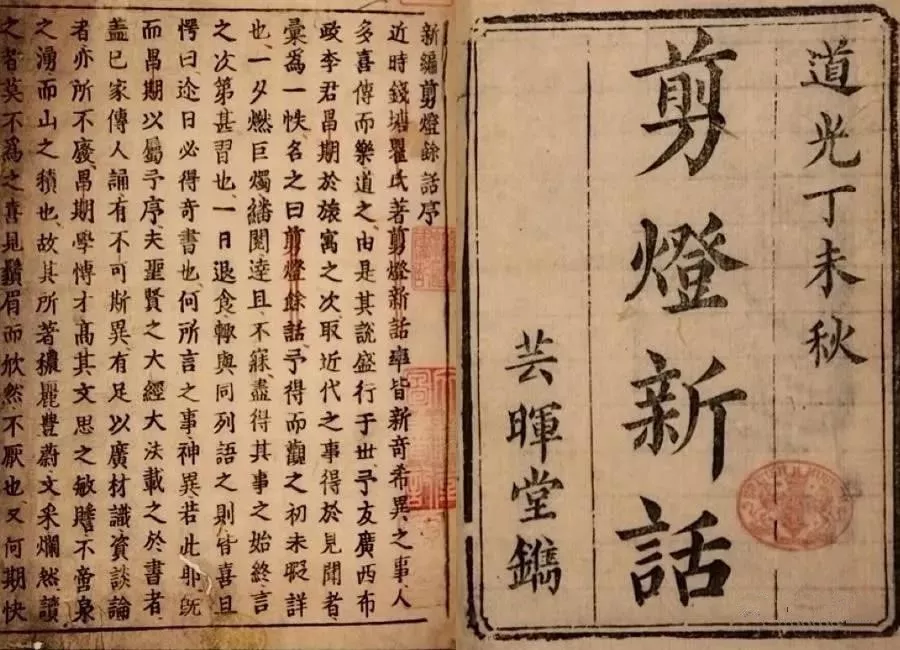 道光丁未秋
剪燈新話
芸暉堂鐫
新編剪燈餘話序
近時錢塘瞿氏著剪燈新話率皆新奇希異之事人
多喜傳而樂道之由是其說盛行于世予友廣西布
政李君昌期於旅寓之次取近代之事得於見聞者
彙為一帙名之曰剪燈餘話予得而觀之初未暇詳
也一夕燃巨燭繙閱逹旦不寐盡得其事之始終言
之次第甚習也一日退食輙與同列語之則皆喜且
愕曰迩日必得奇書也何所言之事神異若此耶既
而昌期以屬予序夫聖賢之大經大法載之於書者
盖已家傳人誦有不可斯異有足以廣材識資談論
者亦所不廢昌期學博才高其文思之敏贍不啻泉
之湧而山之積也故其所著穠麗豐蔚文采爛然讀
之者莫不爲之喜見鬚眉而欣然不厭也又何期快